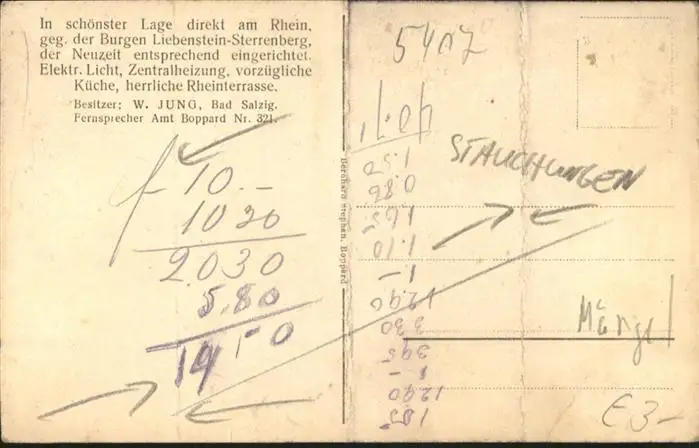 In schönster Lage direkt am Rhein,
geg. der Burgen Liebenstein-Sterrenberg,
der Neuzeit entsprechend eingerichtet.
Elektr. Licht, Zentralheizung, vorzügliche
Küche, herrliche Rheinterrasse.
Besitzer: W. JUNG, Bad Salzig.
Fernsprecher Amt Boppard Nr. 321.
10.-
1030
2030
5.80
Bernhard Stephan, Boppard
5407
STAUCHUNGEN
1.50
0.86
1.65
1.10
1.-
12.90
3.30
3.95
1.-
12.90
1.85
Mängel
€ 3-